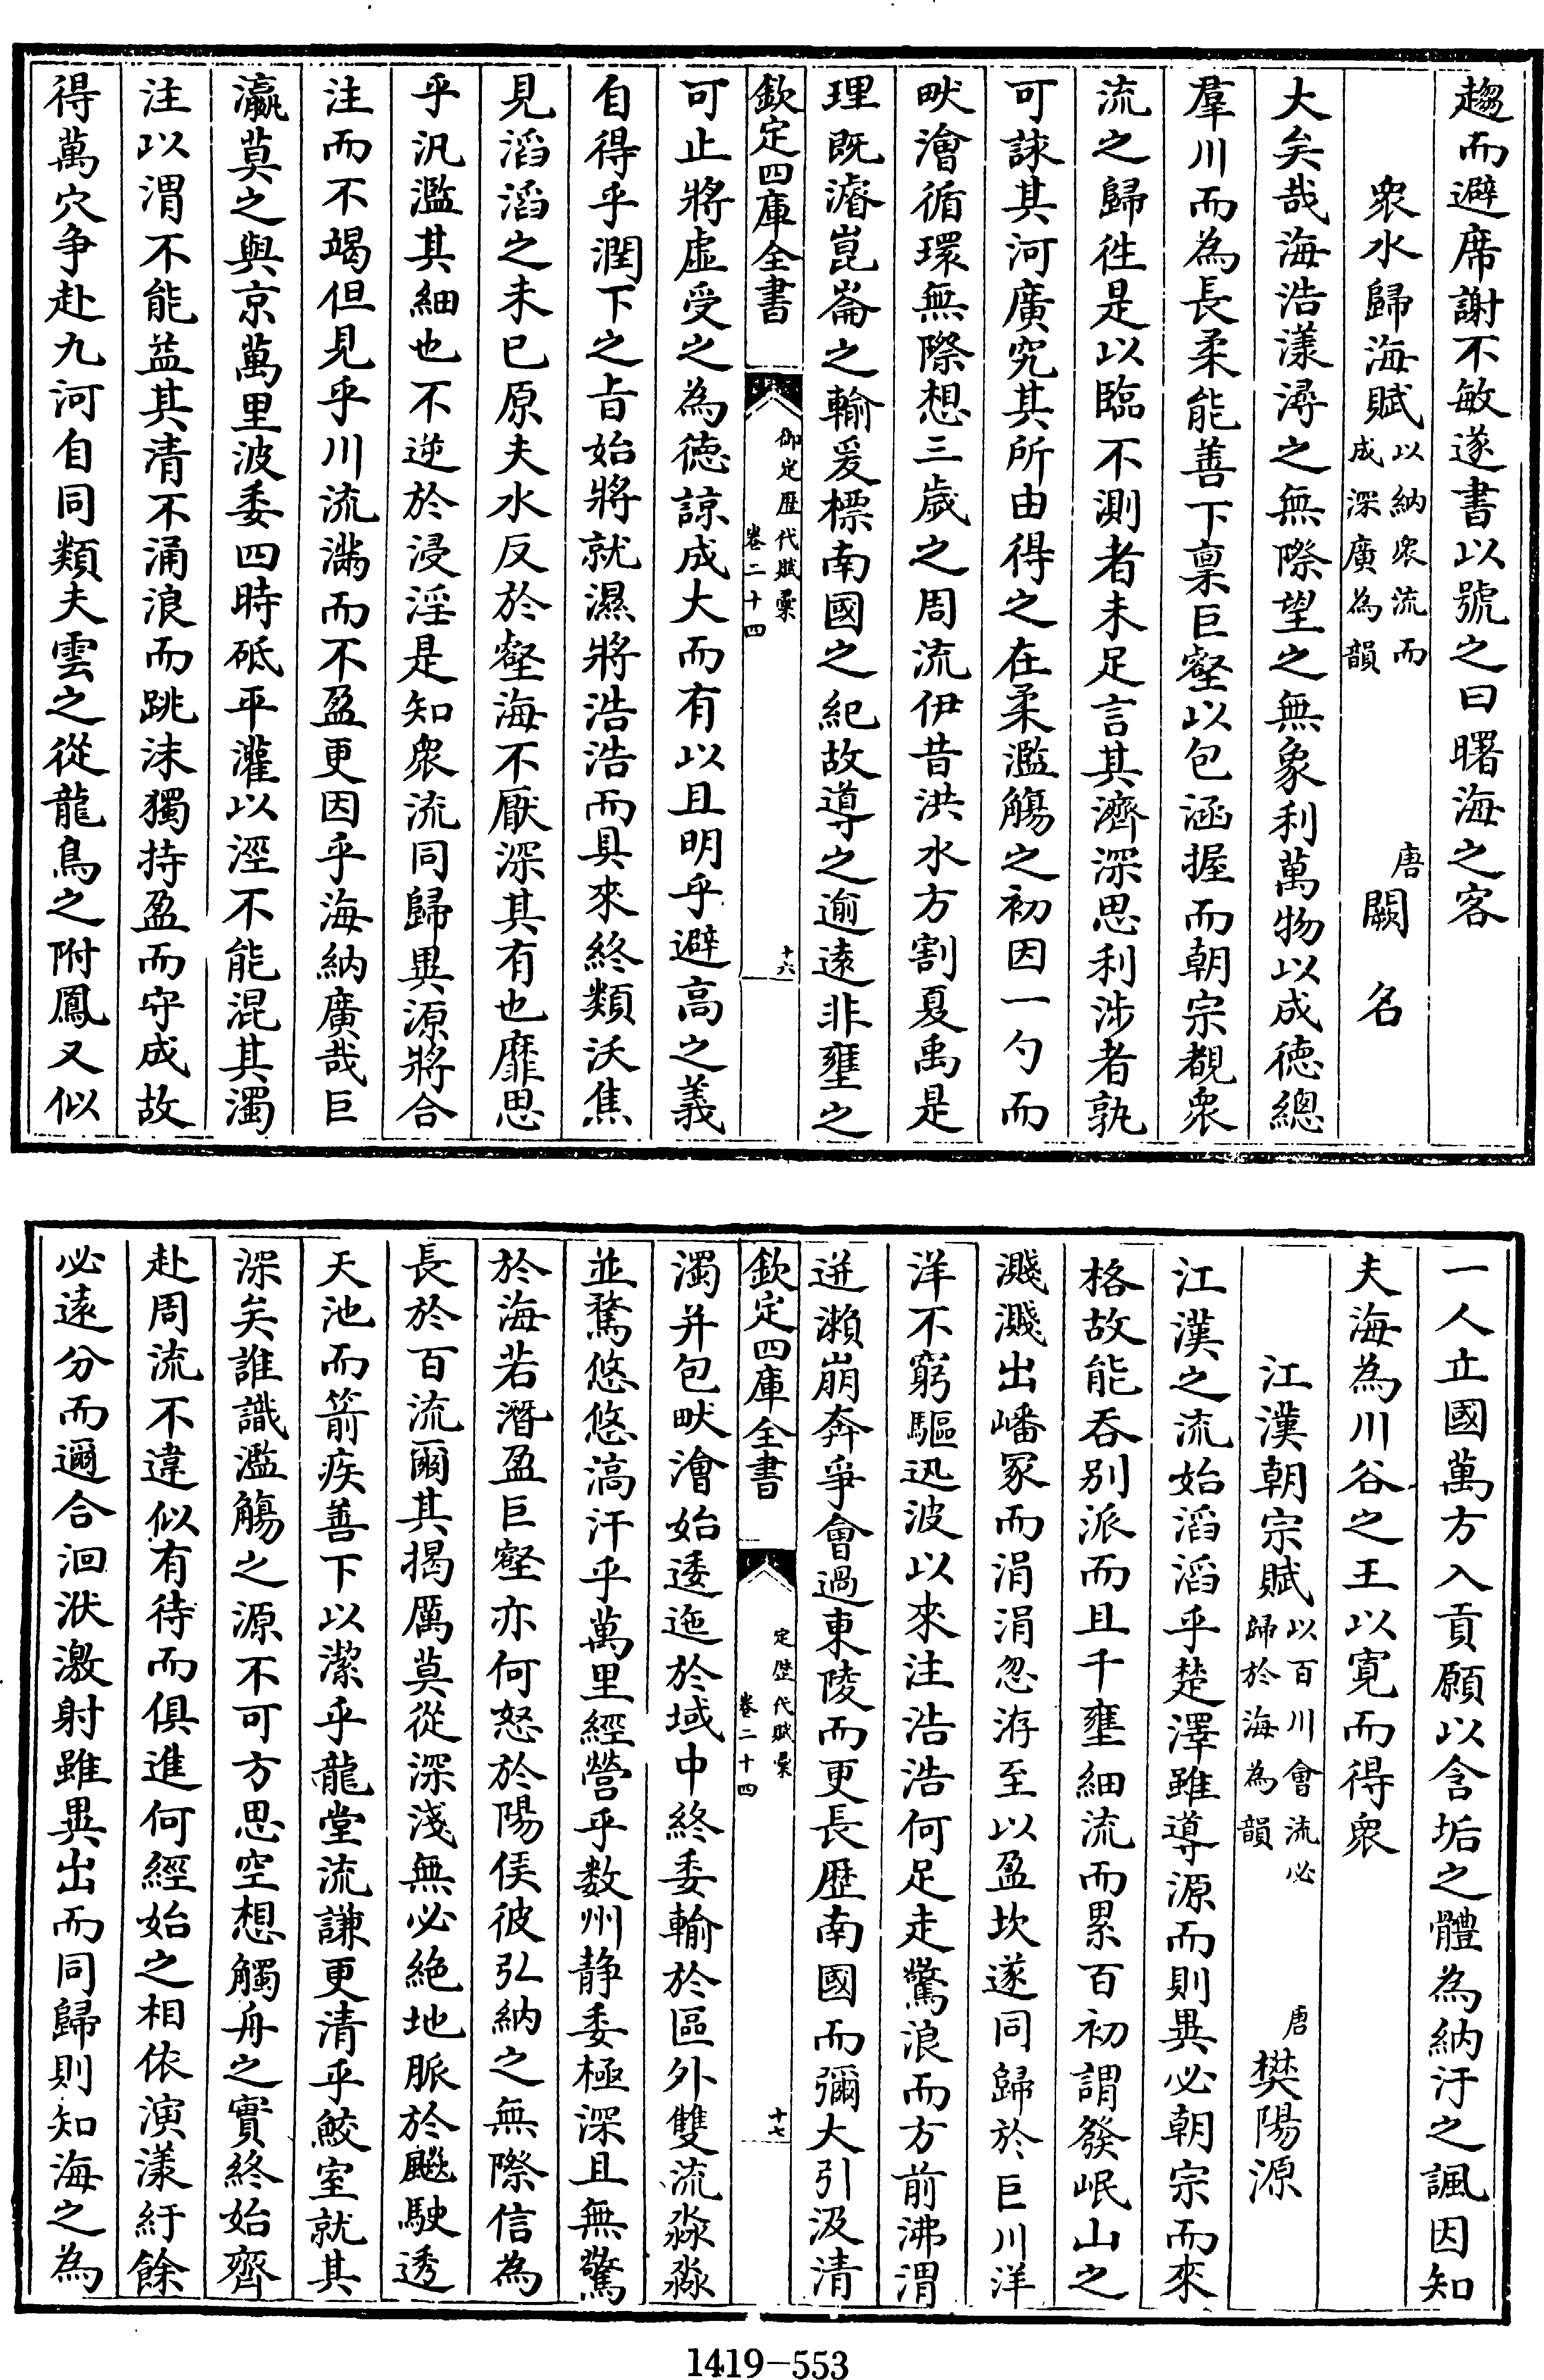 趨而避席謝不敏遂書以號之曰曙海之客
衆水歸海賦以納衆流而成深廣為韻 唐闕名
大矣哉海浩漾潯之無際望之無象利萬物以成德總
羣川而為長柔能善下稟巨壑以包涵握而朝宗覩衆
流之歸徃是以臨不測者未足言其濟深思利涉者孰
可詠其河廣究其所由得之在柔濫觴之初因一勺而
畎澮循環無際想三歲之周流伊昔洪水方割夏禹是
理既濬崑崙之輸爰標南國之紀故導之逾遠非壅之
欽定四庫全書 御定歷代賦彙卷二十四 十六
可止將虛受之為德諒成大而有以且明乎避高之義
自得乎潤下之旨始將就濕將浩浩而具來終類沃焦
見滔滔之未已原夫水反於壑海不厭深其有也靡思
乎汎濫其細也不逆於浸淫是知衆流同歸異源將合
注而不竭但見乎川流滿而不盈更因乎海納廣哉巨
瀛莫之與京萬里波委四時砥平灌以涇不能混其濁
注以渭不能益其清不涌浪而跳沫獨持盈而守成故
得萬穴争赴九河自同類夫雲之從龍鳥之附鳳又似
一人立國萬方入貢願以含垢之體為納汙之諷因知
夫海為川谷之王以寛而得衆
江漢朝宗賦以百川會流必歸於海為韻 唐樊陽源
江漢之流始滔滔乎楚澤雖導源而則異必朝宗而來
格故能吞别派而且千壅細流而累百初謂發岷山之
濺濺出嶓冢而涓涓忽洊至以盈坎遂同歸於巨川洋
洋不窮驅迅波以來注浩浩何足走驚浪而方前沸渭
迸瀨崩奔爭會過東陵而更長歷南國而彌大引汲清
欽定四庫全書 定歷代賦彙卷二十四 十七
濁并包畎澮始逶迤於域中終委輸於區外雙流淼淼
並騖悠悠滈汗乎萬里經營乎数州静委極深且無驚
於海若潛盈巨壑亦何怒於陽侯彼弘納之無際信為
長於百流爾其揭厲莫從深淺無必絶地脈於飈駛透
天池而箭疾善下以潔乎龍堂流謙更清乎鮫室就其
深矣誰識濫觴之源不可方思空想觸舟之實終始齊
赴周流不違似有待而俱進何經始之相依演漾紆餘
必遠分而邇合洄洑激射雖異出而同歸則知海之為
1419-553